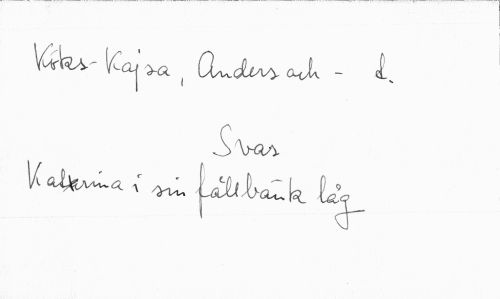 Köks-Kajsa, Anders och - d.
Svar
Katrina i sin fällbänk låg